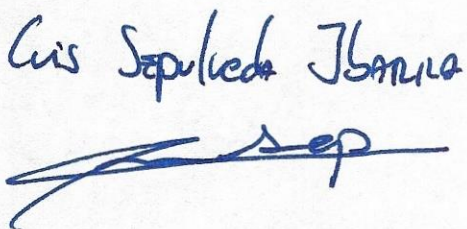 Luis Sepulveda Ibarra
sep